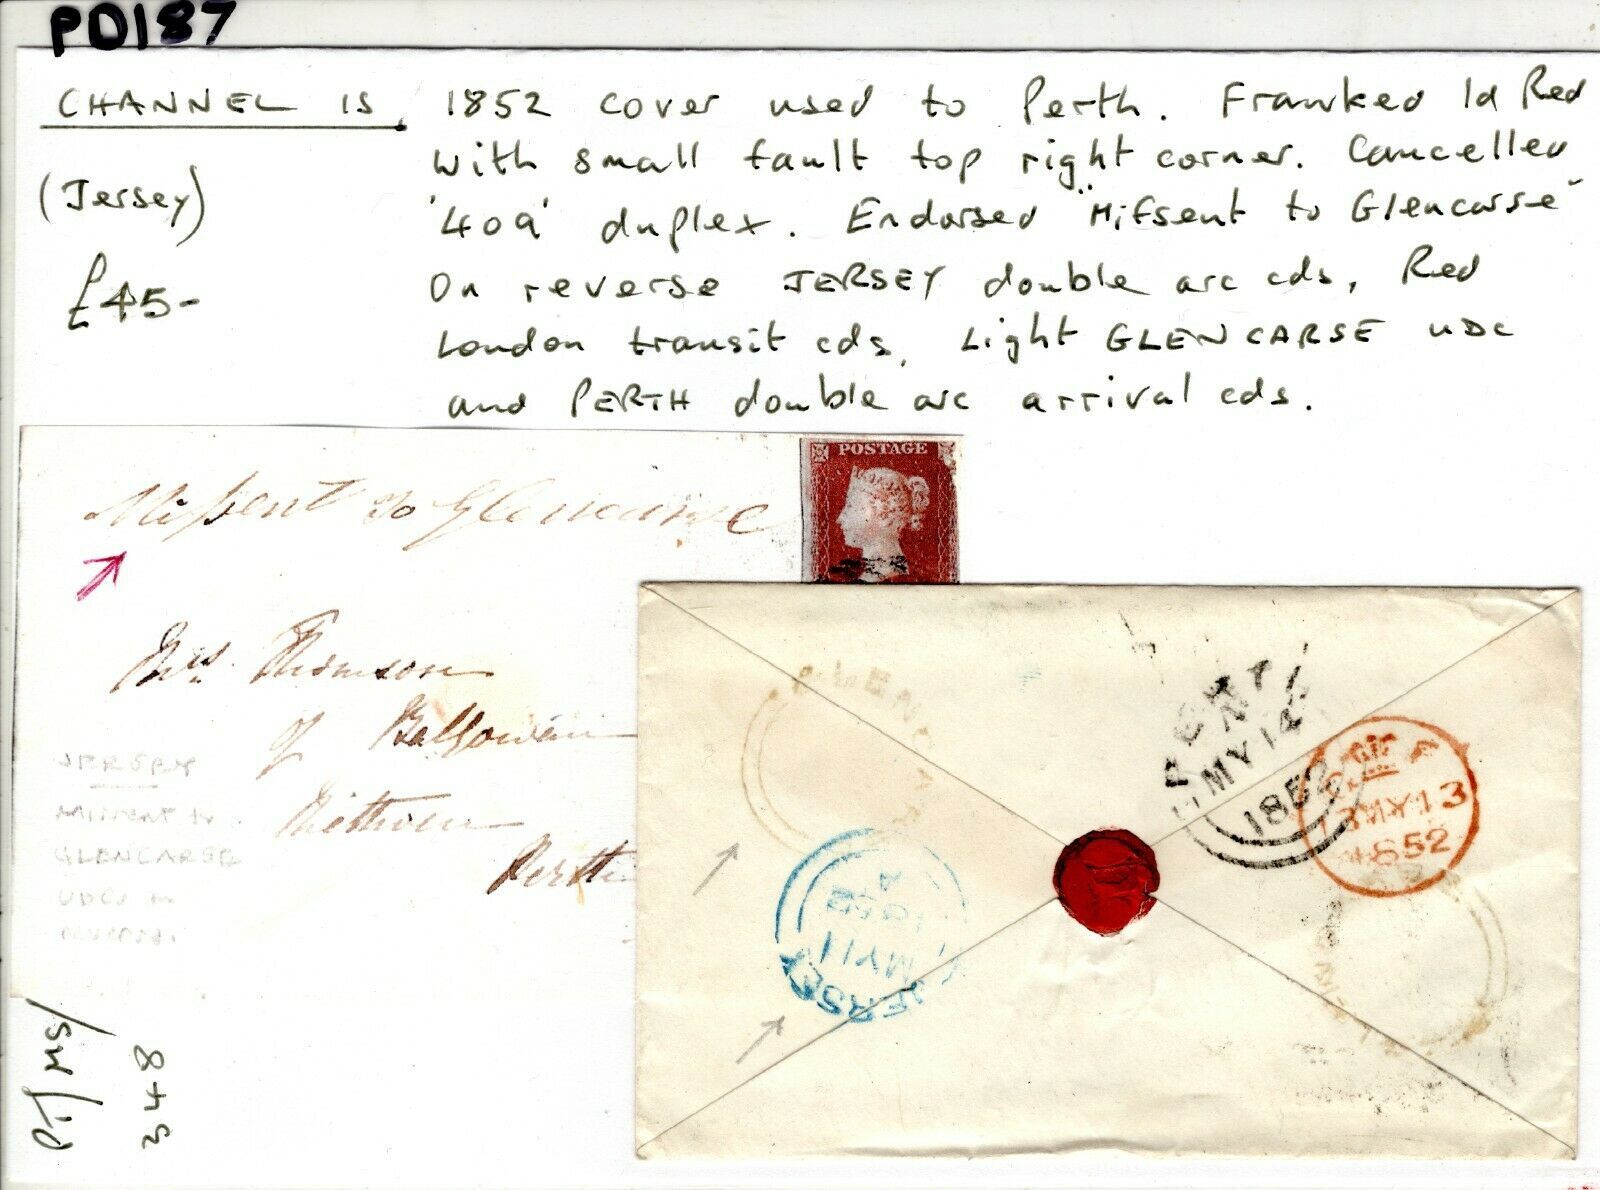 PO187
CHANNEL IS, 1852 cover used to Perth. Franked 1d Red
with small fault top right corner. Cancelled
(Jersey)
'409' duplex. Endorsed "Missent to Glencarse"
£45-
On reverse JERSEY double arc cds, Red
London transit cds, Light GLENCARSE UDC
and PERTH double arc arrival cds.
Missent to Glencarse
POSTAGE
Mrs. Thomson
of Balgowan
Methven
Perth
JERSEY
MISSENT to
GLENCARSE
UDCs on
reverse.
PERTH
MY 14
1852
13 MY 13
1852
JERSEY
MY 11
1852
PT/MS/
348